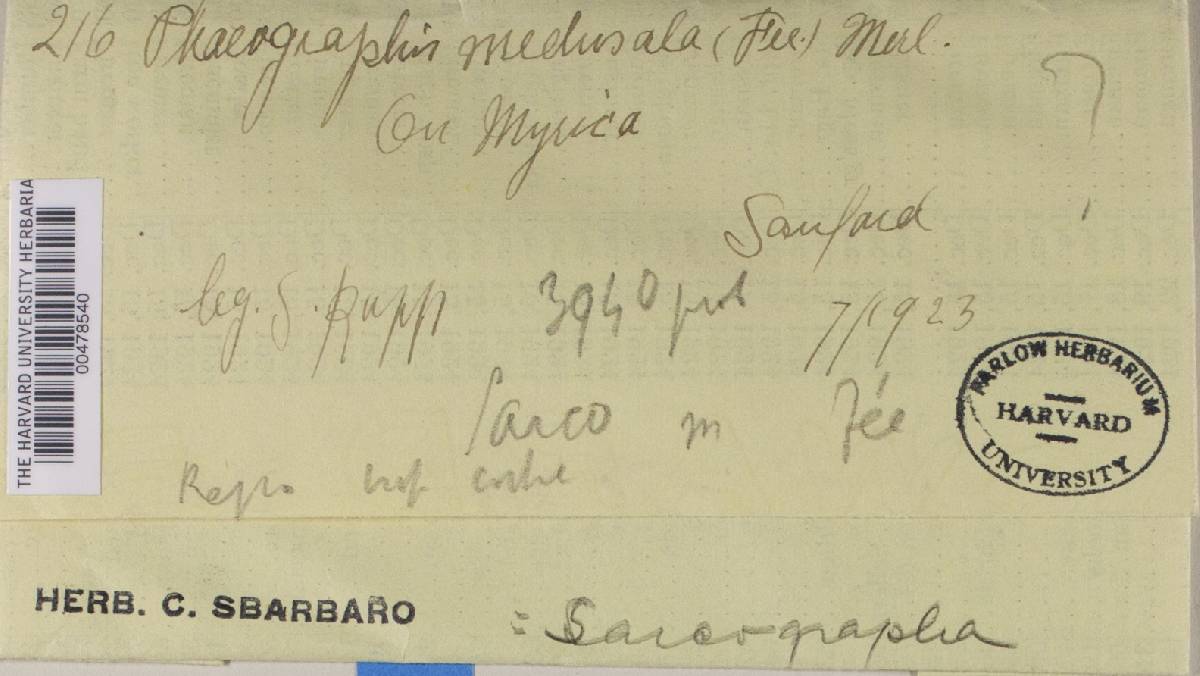 216 Phaeographis medusala (Fée.) Merl.
On Myrica
?
Sanford
leg. S. Rapp 3940 7/1923
Sarco m Fée
HERB. C. SBARBARO
= Sarcographa
THE HARVARD UNIVERSITY HERBARIA
00478540
FARLOW HERBARIUM
HARVARD
UNIVERSITY